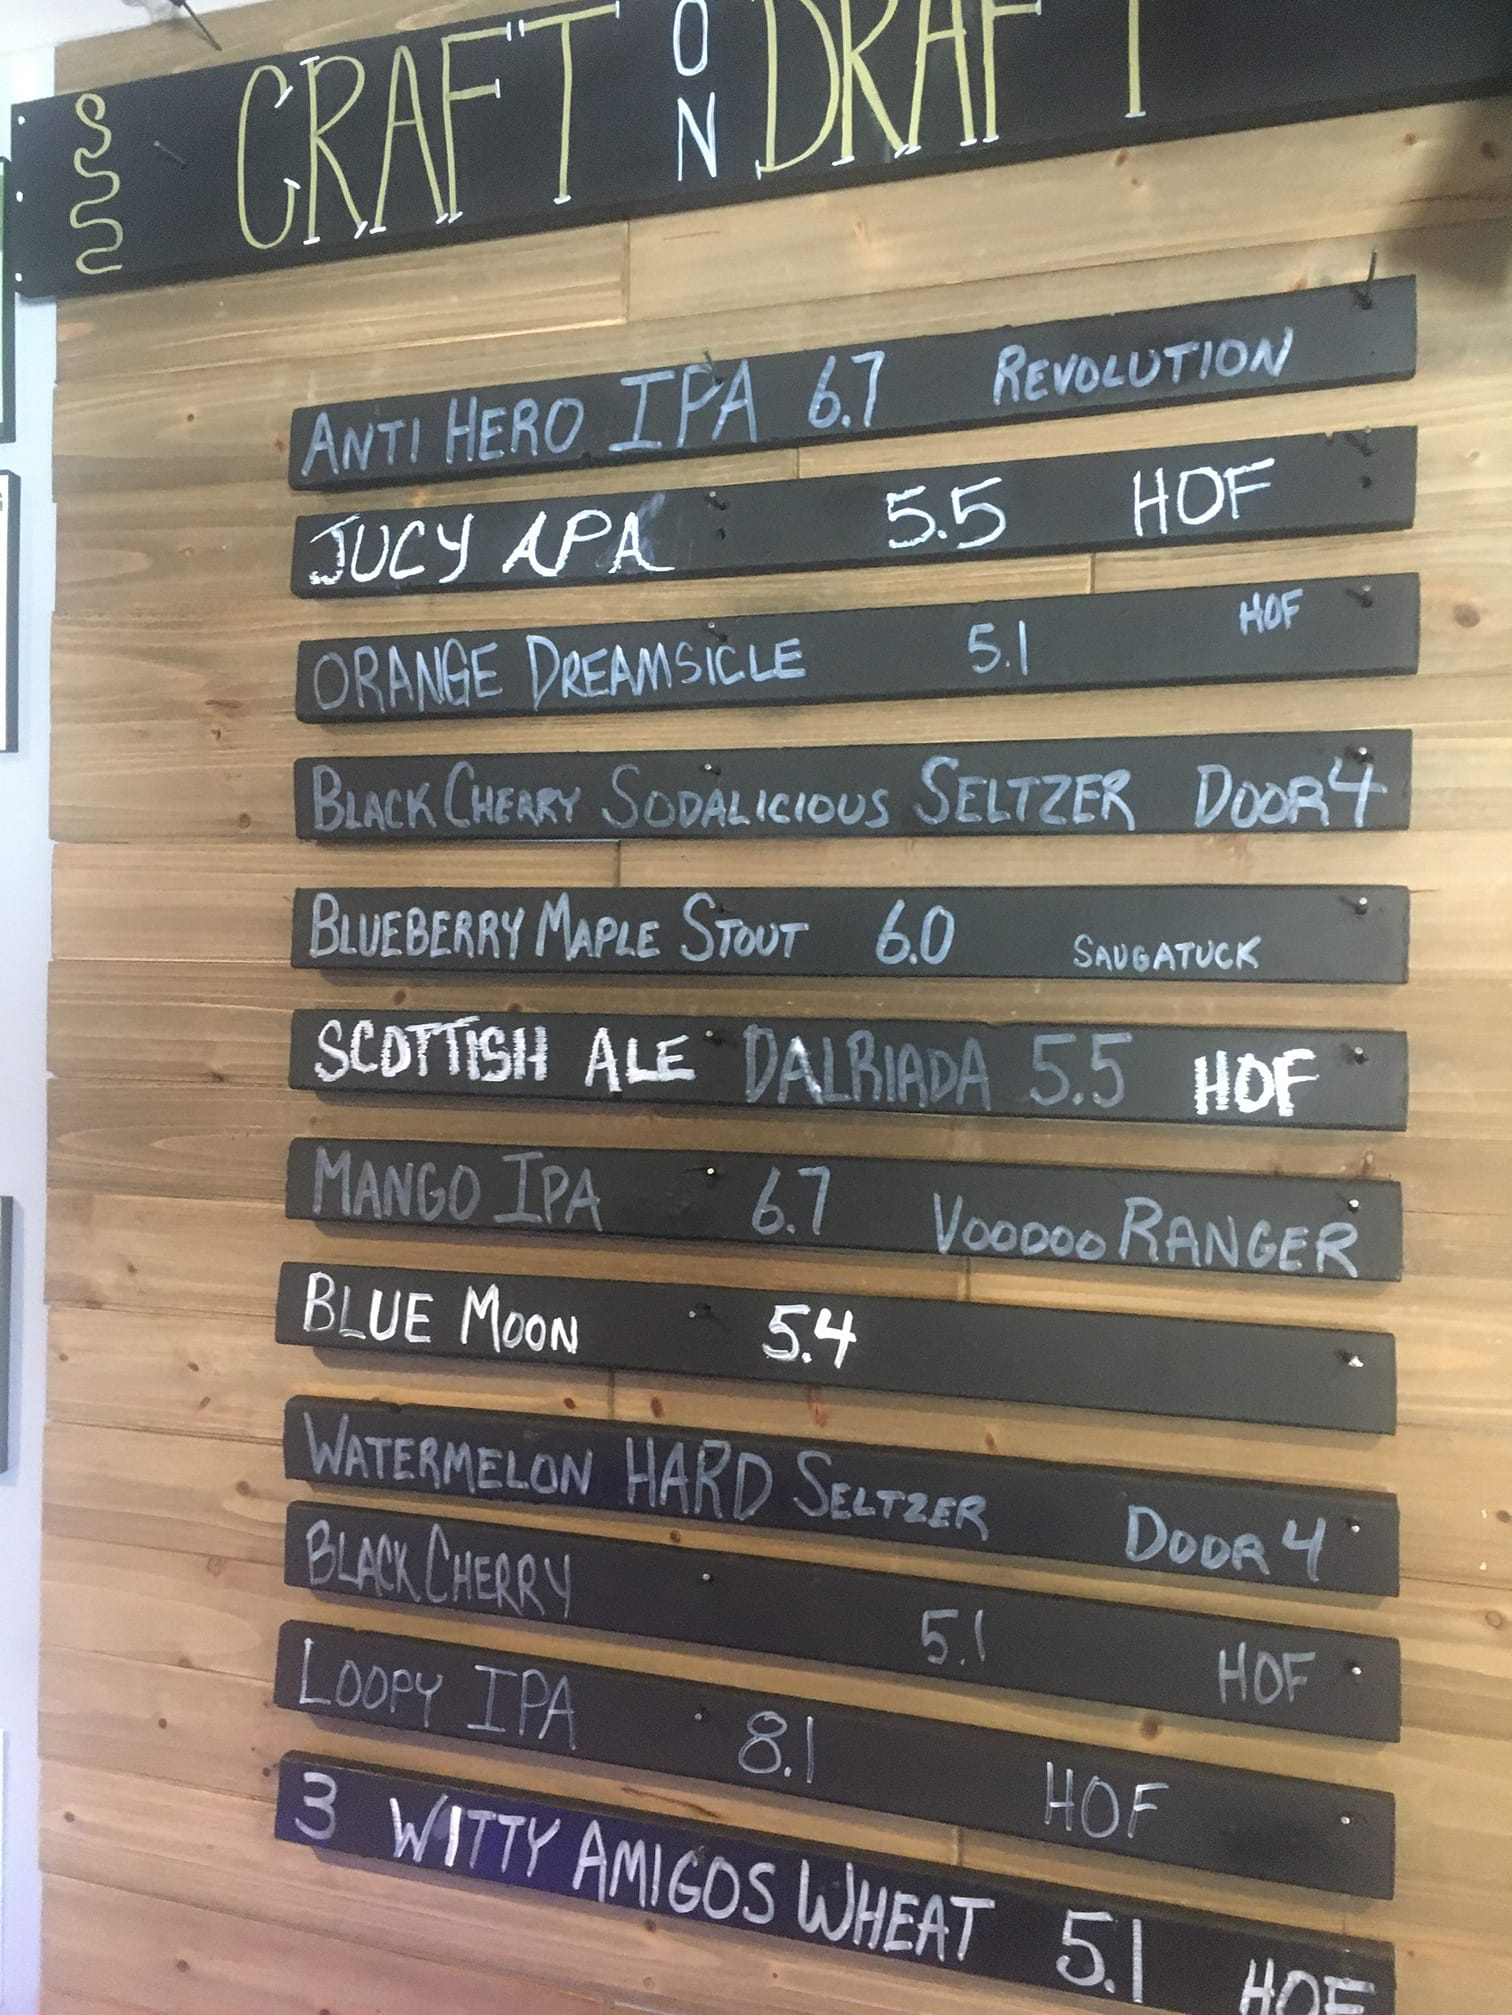 CRAFT ON DRAFT
ANTI HERO IPA 6.7 REVOLUTION
JUCY APA 5.5 HOF
ORANGE DREAMSICLE 5.1 HOF
BLACK CHERRY SODALICIOUS SELTZER DOOR 4
BLUEBERRY MAPLE STOUT 6.0 SAUGATUCK
SCOTTISH ALE DALRIADA 5.5 HOF
MANGO IPA 6.7 VOODOO RANGER
BLUE MOON 5.4
WATERMELON HARD SELTZER DOOR 4
BLACK CHERRY 5.1 HOF
LOOPY IPA 8.1 HOF
3 WITTY AMIGOS WHEAT 5.1 HOF